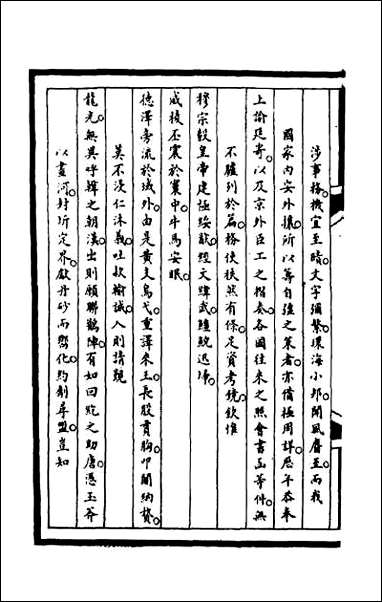 涉事務機宜至賾文字彌繁環海小邦聞風麕至而我
國家內安外攘所以籌自強之策者亦備極周詳歷年恭奉
上諭廷寄以及京外臣工之摺奏各國往來之照會書函等件無
不臚列於篇務使秩然有條足資考鏡欽惟
穆宗毅皇帝建極綏猷經文緯武鱷鯢迅埽
威稜丕震於寰中牛馬安眠
德澤旁流於域外由是黃支烏弋重譯來王長股貫胸叩關納贄
莫不浸仁沐義吐款輸誠入則請覲
龍光無異呼韓之朝漢出則願聯鸛陣有如回紇之助唐憑玉斧
以畫河封圻定界獻丹砂而嚮化約劑尋盟豈知